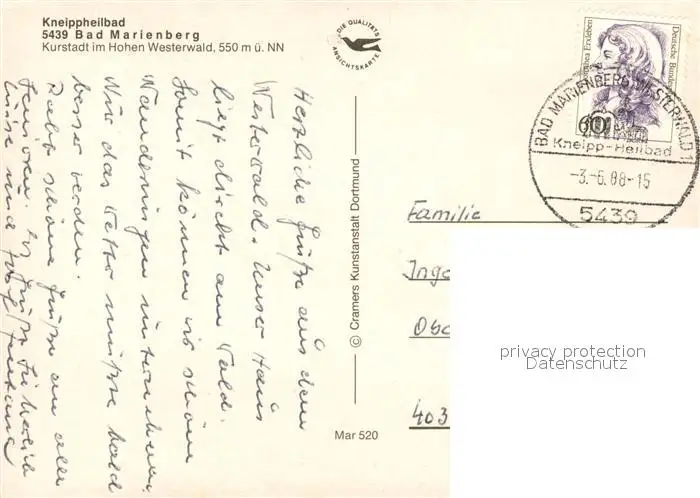 Kneippheilbad
5439 Bad Marienberg
Kurstadt im Hohen Westerwald, 550 m ü. NN
DIE QUALITÄTS
ANSICHTSKARTE
Herzliche Grüße aus dem
Westerwald. Unser Haus
liegt direkt am Wald.
Somit können wir schöne
Wanderungen unternehmen.
Nur das Wetter müßte bald
besser werden.
schöne Grüße an alle
Es
und
© Cramers Kunstanstalt Dortmund
Mar 520
Deutsche Bundes
Erxleben
60
BAD MARIENBERG WESTERWALD
Kneipp-Heilbad
-3.-6.88-15
5439
Familie
Inge
Obe
403
privacy protection
Datenschutz